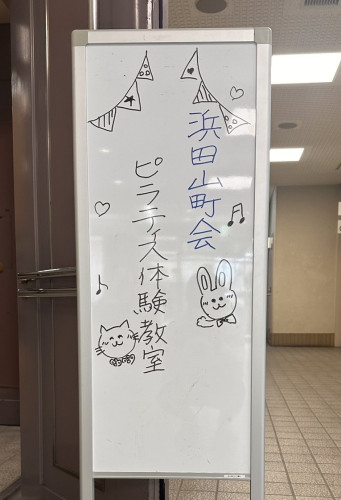 浜田山町会
ピラティス体験教室